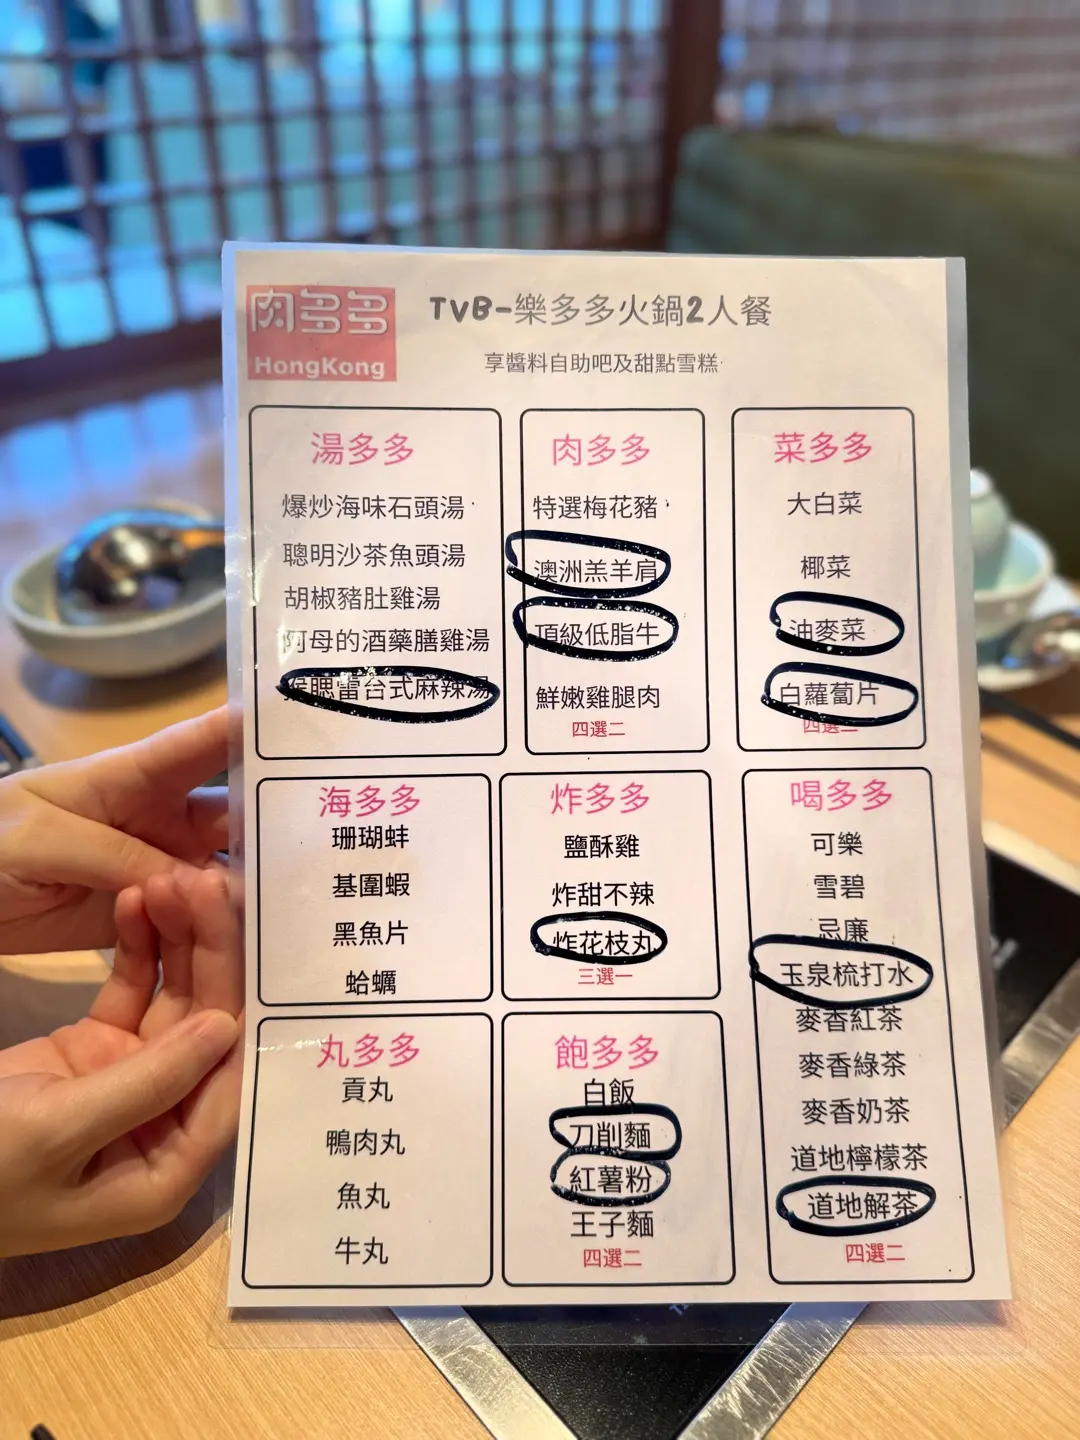 肉多多
HongKong
TVB-樂多多火鍋2人餐
享醬料自助吧及甜點雪糕
湯多多
爆炒海味石頭湯
聰明沙茶魚頭湯
胡椒豬肚雞湯
阿母的酒藥膳雞湯
猴腮雷台式麻辣湯
肉多多
特選梅花豬
澳洲羔羊肩
頂級低脂牛
鮮嫩雞腿肉
四選二
菜多多
大白菜
椰菜
油麥菜
白蘿蔔片
四選二
海多多
珊瑚蚌
基圍蝦
黑魚片
蛤蠣
炸多多
鹽酥雞
炸甜不辣
炸花枝丸
三選一
喝多多
可樂
雪碧
忌廉
玉泉梳打水
麥香紅茶
麥香綠茶
麥香奶茶
道地檸檬茶
道地解茶
四選二
丸多多
貢丸
鴨肉丸
魚丸
牛丸
飽多多
白飯
刀削麵
紅薯粉
王子麵
四選二